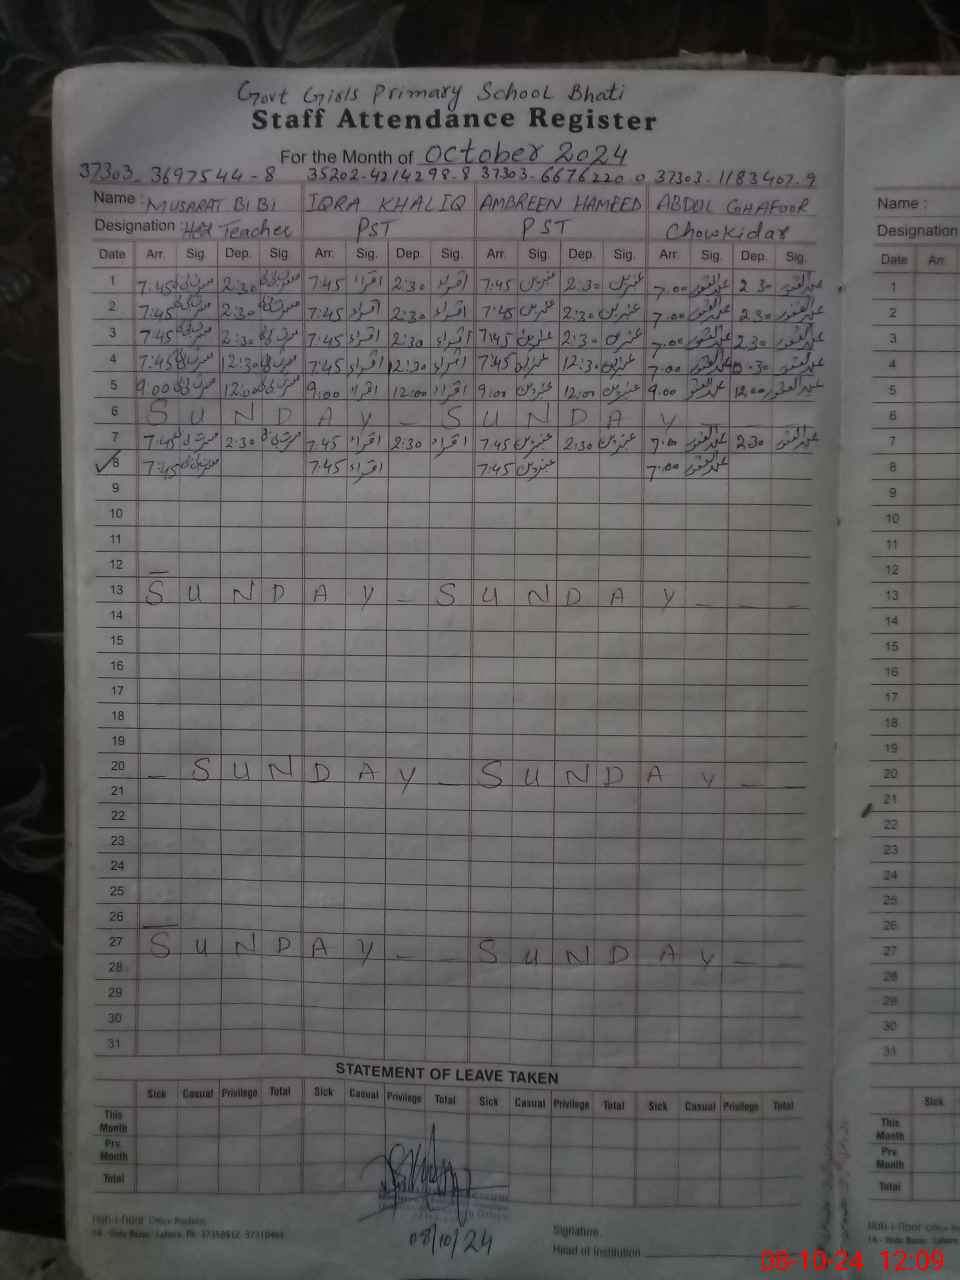 Govt Girls Primary School Bhati
Staff Attendance Register
For the Month of October 2024
37303-3697544-8 35202-4214298-8 37303-6676220 0 37303-1183407-9
Name : MUSARAT BIBI IQRA KHALIQ AMBREEN HAMEED ABDUL GHAFOOR Name :
Designation : Head Teacher PST PST Chowkidar Designation
Date Arr. Sig. Dep. Sig. Arr. Sig. Dep. Sig. Arr. Sig. Dep. Sig. Arr. Sig. Dep. Sig. Date Arr.
1 7:45 2:30 7:45 اقراء 2:30 اقراء 7:45 عنبرین 2:30 عنبرین 7.00 عبدالغفور 2 30 عبدالغفور 1
2 7:45 2:30 7:45 اقراء 2:30 اقراء 7:45 عنبرین 2:30 عنبرین 7.00 عبدالغفور 2.30 عبدالغفور 2
3 7:45 2:30 7:45 اقراء 2:30 اقراء 7:45 عنبرین 2:30 عنبرین 7.00 عبدالغفور 2.30 عبدالغفور 3
4 7:45 12:30 7:45 اقراء 12:30 اقراء 7:45 عنبرین 12:30 عنبرین 7.00 عبدالغفور عبدالغفور 4
5 9:00 12:00 9:00 اقراء 12:00 اقراء 9:00 عنبرین 12:00 عنبرین 9.00 عبدالغفور 12.00 عبدالغفور 5
6 S U N D A Y - S U N D A Y 6
7 7:45 2:30 7:45 اقراء 2:30 اقراء 7:45 عنبرین 2:30 عنبرین 7.00 عبدالغفور 2.30 عبدالغفور 7
8 7:45 7:45 اقراء 7:45 عنبرین 7.00 عبدالغفور 8
9 9
10 10
11 11
12 12
13 S U N D A Y - S U N D A Y - - - 13
14 14
15 15
16 16
17 17
18 18
19 19
20 - S U N D A Y - S U N D A Y - - 20
21 21
22 22
23 23
24 24
25 25
26 26
27 S U N D A Y - - S U N D A Y - - 27
28 28
29 29
30 30
31 31
STATEMENT OF LEAVE TAKEN
Sick Casual Privilege Total Sick Casual Privilege Total Sick Casual Privilege Total Sick Casual Privilege Total Sick
This Month This Month
Prv. Month Prv. Month
Total Total
08/10/24
Signature.
Head of Institution
08-10-24 12:09